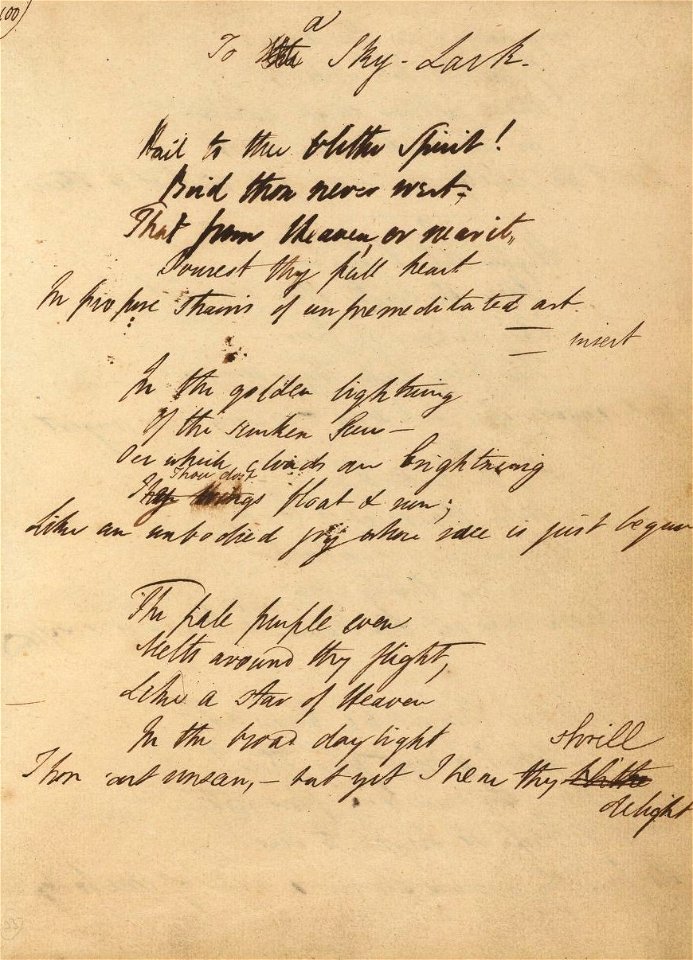 100)
To a Sky-Lark.
Hail to thee blithe Spirit!
Bird thou never wert,
That from Heaven, or near it,
Pourest thy full heart
In profuse strains of unpremeditated art.
insert
In the golden lightning
Of the sunken Sun —
Oer which clouds are brightning
Thou dost
float & run;
Like an unbodied joy whose race is just begun
The pale purple even
Melts around thy flight,
Like a star of Heaven
In the broad daylight
shrill
Thou art unseen, — but yet I hear thy blithe
delight